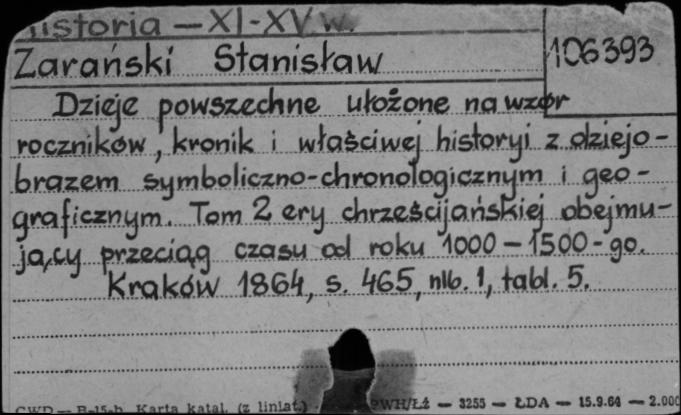 Historia — XI-XV w.
Zarański Stanisław
106393
Dzieje powszechne ułożone na wzór
roczników, kronik i właściwej historyi z dziejo-
brazem symboliczno-chronologicznym i geo-
graficznym. Tom 2 ery chrześcijańskiej obejmu-
jący przeciąg czasu od roku 1000 — 1500-go.
Kraków 1864, s. 465, nlb. 1, tabl. 5.
CWD — B-15-b Karta katal. (z liniat.) PWH/Łź — 3255 — ŁDA — 15.9.64 — 2.000